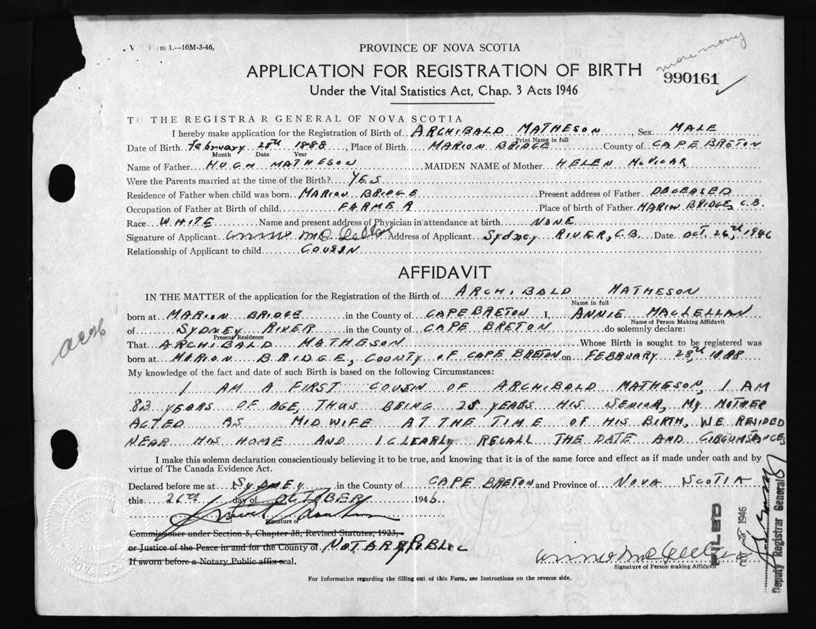 1.—10M-3-46,
PROVINCE OF NOVA SCOTIA
more money
APPLICATION FOR REGISTRATION OF BIRTH
990161
Under the Vital Statistics Act, Chap. 3 Acts 1946
TO THE REGISTRAR GENERAL OF NOVA SCOTIA
I hereby make application for the Registration of Birth of ARCHIBALD MATHESON, Sex MALE
Print Name in full
Date of Birth February 28th 1888, Place of Birth MARION BRIDGE County of CAPE BRETON
Month Date Year
Name of Father HUGH MATHESON MAIDEN NAME of Mother HELEN McVICAR
Were the Parents married at the time of the Birth? YES
Residence of Father when child was born MARION BRIDGE Present address of Father DECEASED
Occupation of Father at Birth of child FARMER Place of birth of Father MARION BRIDGE, C.B.
Race WHITE Name and present address of Physician in attendance at birth NONE
Signature of Applicant Address of Applicant Sydney RIVER, C.B. Date OCT. 26, 1946
Relationship of Applicant to child COUSIN
AFFIDAVIT
IN THE MATTER of the application for the Registration of the Birth of ARCHIBALD MATHESON
Name in full
born at MARION BRIDGE in the County of CAPE BRETON I, ANNIE MACLELLAN
Name of Person Making Affidavit
of SYDNEY RIVER in the County of CAPE BRETON do solemnly declare:
Present Residence
That ARCHIBALD MATHESON Whose Birth is sought to be registered was
born at MARION BRIDGE, COUNTY OF CAPE BRETON on FEBRUARY 28th 1888
My knowledge of the fact and date of such Birth is based on the following Circumstances:
I AM A FIRST COUSIN OF ARCHIBALD MATHESON, I AM
83 YEARS OF AGE, THUS BEING 25 YEARS HIS SENIOR, MY MOTHER
ACTED AS MIDWIFE AT THE TIME OF HIS BIRTH, WE RESIDED
NEAR HIS HOME AND I CLEARLY RECALL THE DATE AND CIRCUMSTANCES
I make this solemn declaration conscientiously believing it to be true, and knowing that it is of the same force and effect as if made under oath and by
virtue of The Canada Evidence Act.
Declared before me at SYDNEY in the County of CAPE BRETON and Province of NOVA SCOTIA
this 26th day of OCTOBER 1946.
Signature of
Commissioner under Section 5, Chapter 38, Revised Statutes, 1923,
or Justice of the Peace in and for the County of NOTARY PUBLIC
If sworn before a Notary Public affix seal.
Signature of Person making Affidavit
FILED
1946
Deputy Registrar General
For Information regarding the filling out of this Form, see Instructions on the reverse side.